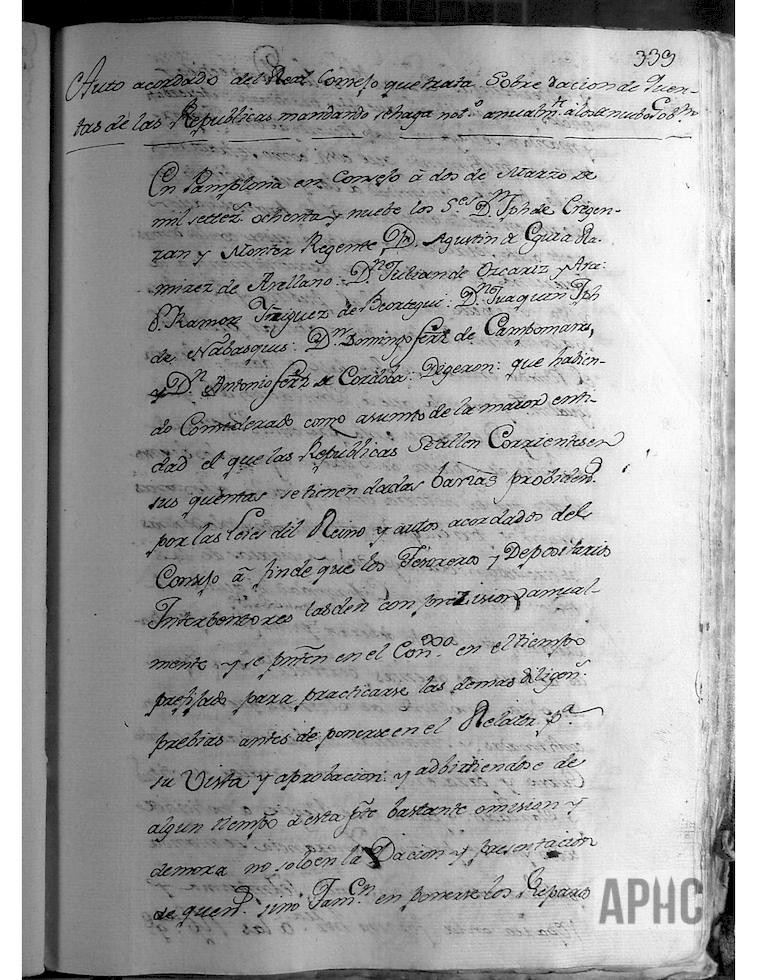 333
Auto acordado del Real Consejo que trata Sobre dacion de Quen-
tas de las Republicas mandando se haga not.º anualm.te a los nuebos Gob.n
En Pamplona en Consejo â dos de Marzo de
mil setez.s ochenta y nuebe los S.res D.n Jph de Cregen-
zan y Monter Regente, D.n Agustin de Eguia Ra-
mirez de Arellano: D.n Julian de Ozcariz y Arce:
D. Ramon Yñiguez de Beortegui: D.n Juaquin Jph
de Nabasques: D.n Domingo Ferz de Campomanes,
y D.n Antonio Ferz de Cordoba: Digeron: que habien-
do Considerado como asunto de la maior enti-
dad el que las Republicas se allen Corrientes en
sus quentas se tienen dadas barias probiden.s
por las Leies del Reino y autos acordados del
Consejo â fin de que los Tesoreros, y Depositarios
Interbentores las den con precision anual-
mente y se pnten en el Con.º en el tiempo
prefijado para practicarse las demas diligen.s
prebias antes de ponerse en el Relator p.a
su Vista y aprobacion: y adbirtiendose de
algun tiempo a esta pte bastante omision y
demora no solo en la Dacion y presentacion
de quen.s sino Tam.n en ponerse los Reparos
APHC